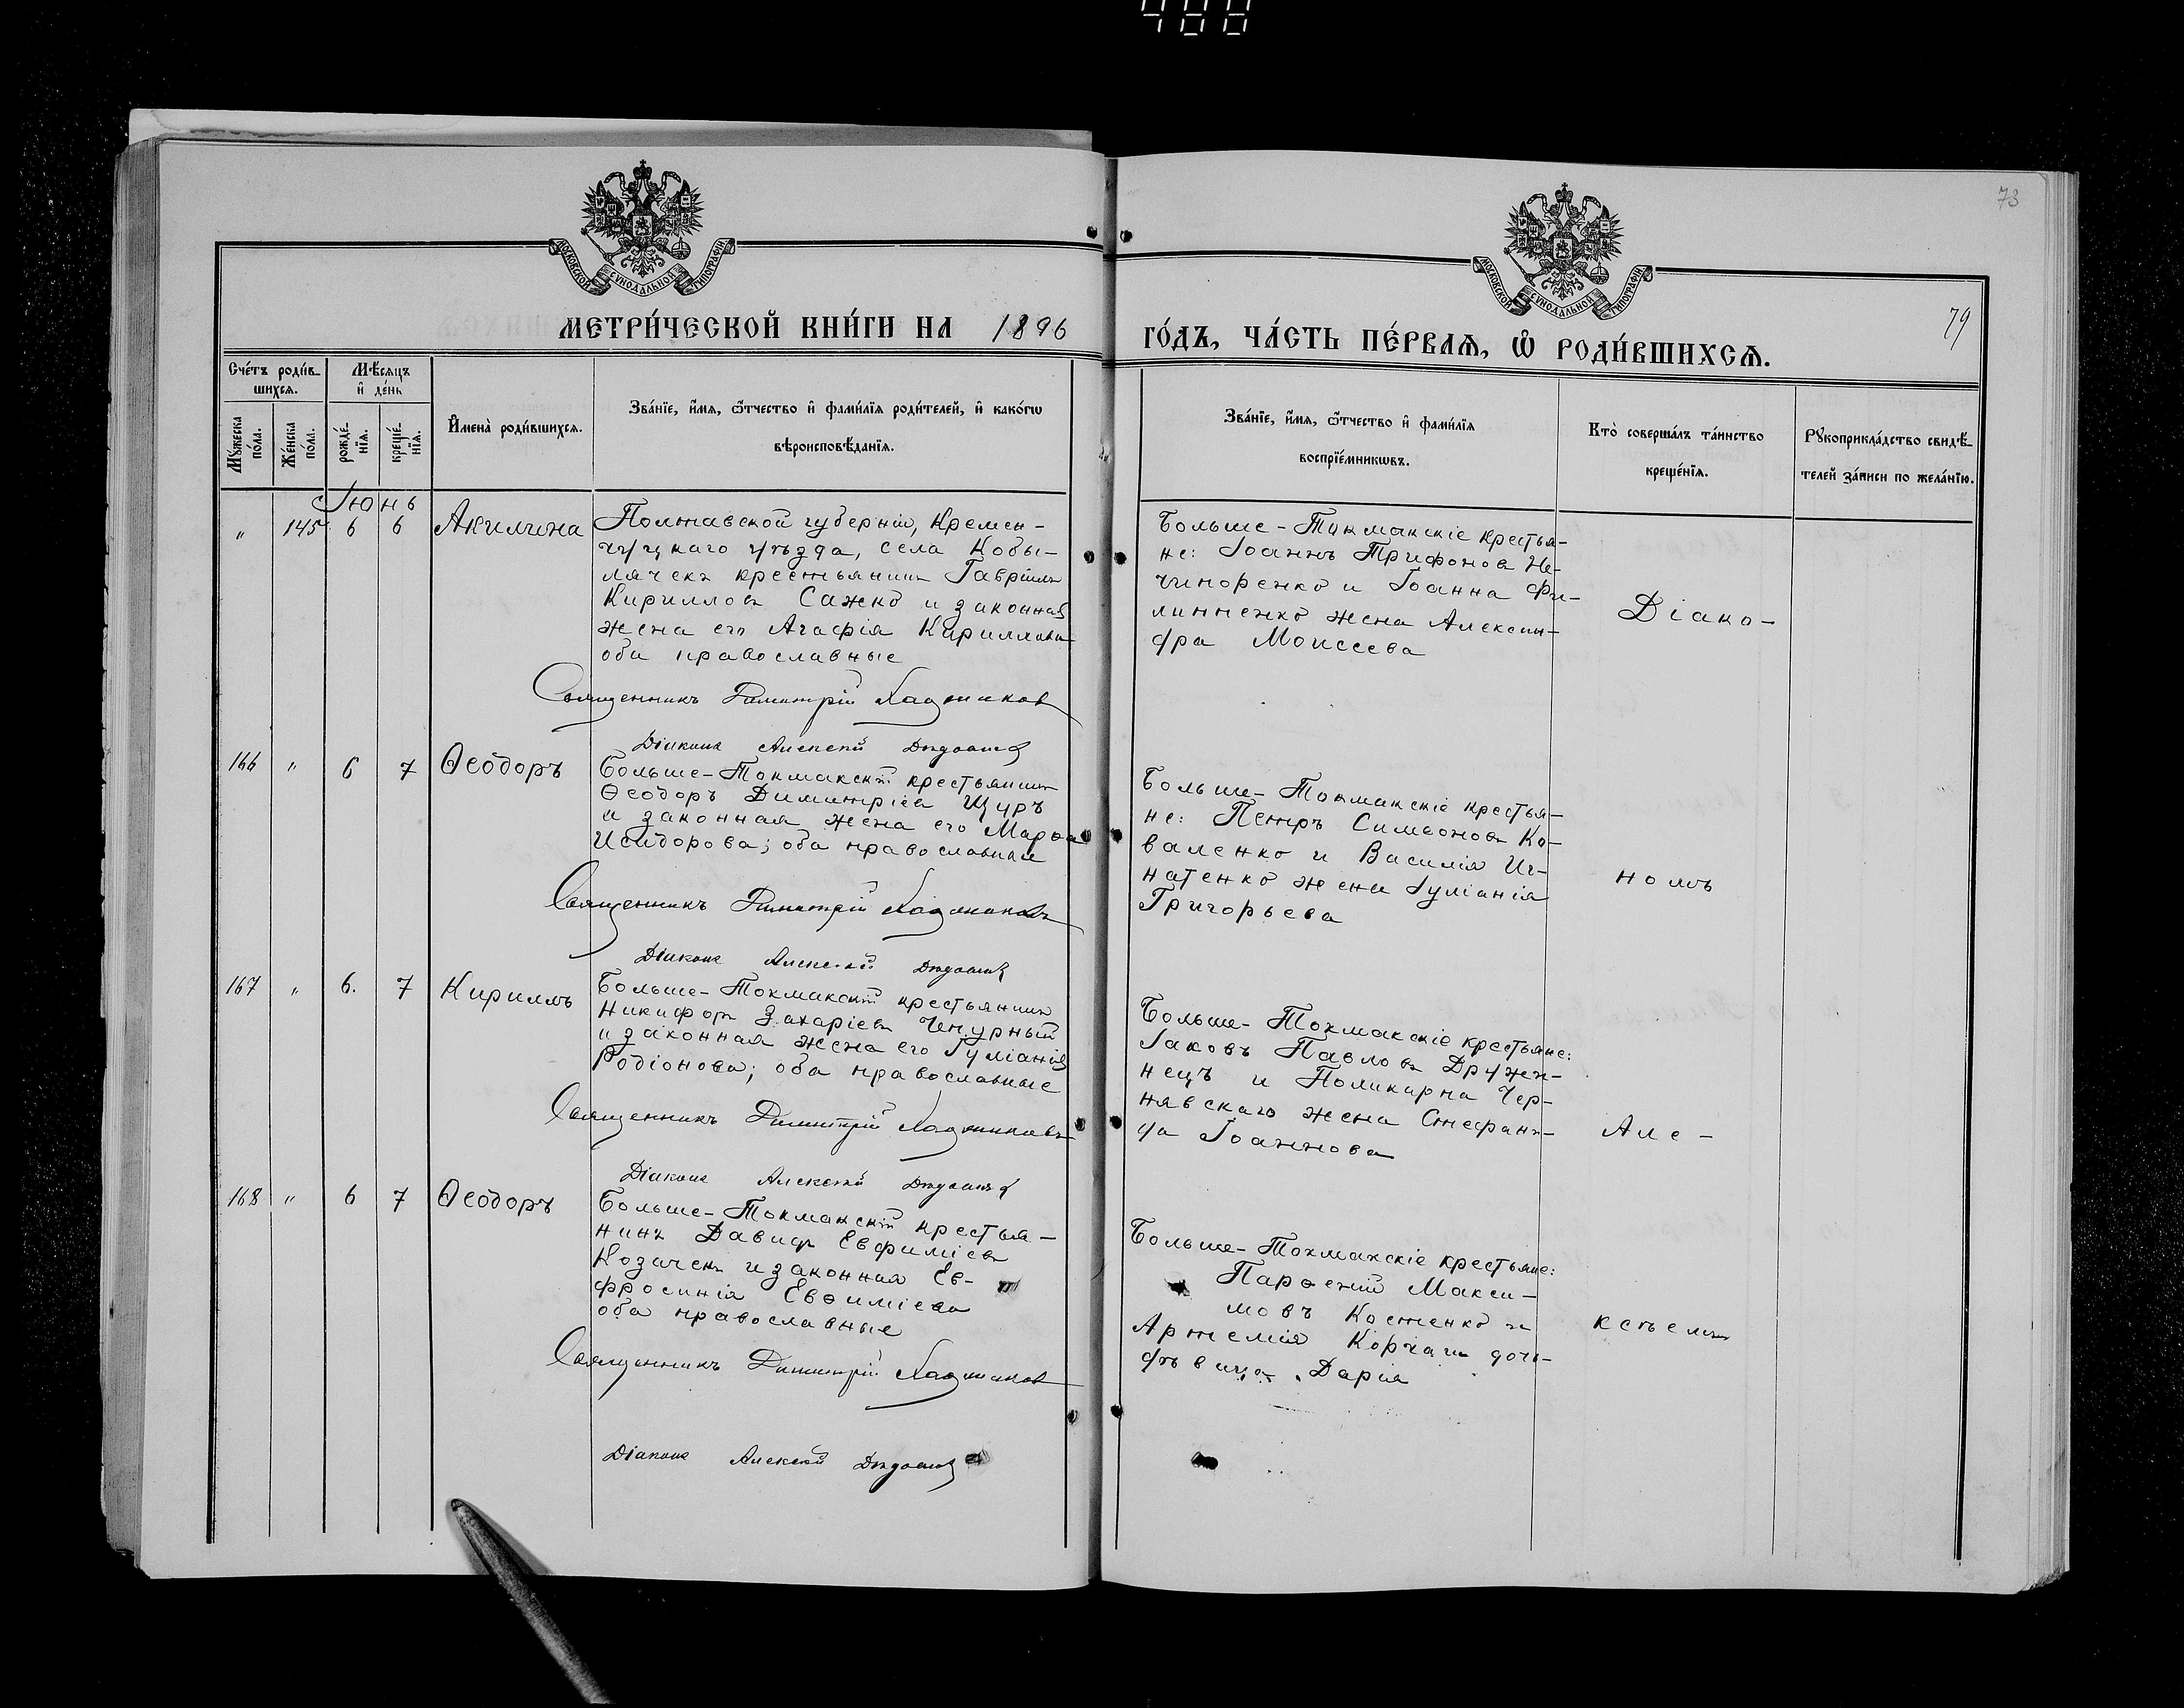 488
73
МОСКОВСКОЙ СѴНОДАЛЬНОЙ ТИПОГРАФІИ
МОСКОВСКОЙ СѴНОДАЛЬНОЙ ТИПОГРАФІИ
МЕТРИ́ЧЕСКОЙ КНИ́ГИ НА 1896
ГО́ДЪ, ЧА́СТЬ ПЕ́РВАѦ, Ѽ РОДИ́ВШИХСѦ.
79
Сче́тъ роди́в-
шихсѧ.
Мѣсѧцъ
и҆ де́нь
Мꙋ́жеска
по́ла.
Же́нска
по́ла.
рожде́-
нїѧ.
креще́-
нїѧ.
И҆мена̀ роди́вшихсѧ.
Зва́нїе, и҆́мѧ, ѻ҆́тчество и҆ фами́лїѧ роди́телей, и҆ како́гѡ
вѣроисповѣ́данїѧ.
Зва́нїе, и҆́мѧ, ѻ҆́тчество и҆ фами́лїѧ
воспрїе́мникѡвъ.
Кто̀ соверша́лъ та́инство
креще́нїѧ.
Рꙋкоприкла́дство свидѣ́-
телей за́писи по жела́нїю.
Іюнь
" 145 6 6 Акилина
Полтавской губерніи, Кремен-
чугскаго уѣзда, села Кобы-
лячекъ крестьянинъ Гавріилъ
Кирилловъ Сажко и законная
жена его Агафія Кириллова
оба православные
Священникъ Димитрій
Діаконъ Алексѣй
Больше-Токмакскіе крестья-
не: Іоаннъ Трифоновъ Не-
чипоренко и Іоанна Фи-
липпенко жена Алексан-
дра Моисеева
Діако-
166 " 6 7 Ѳеодоръ
Больше-Токмакскій крестьянинъ
Ѳеодоръ Димитріевъ Щуръ
и законная жена его Марѳа
Исидорова; оба православные
Священникъ Димитрій
Діаконъ Алексѣй
Больше-Токмакскіе крестья-
не: Петръ Симеоновъ Ко-
валенко и Василія Иг-
натенко жена Іуліанія
Григорьева
номъ
167 " 6. 7 Кириллъ
Больше-Токмакскій крестьянинъ
Никифоръ Захаріевъ Чепурный
и законная жена его Іуліанія
Родіонова; оба православные
Священникъ Димитрій
Діаконъ Алексѣй
Больше-Токмакскіе крестьяне:
Іаковъ Павловъ Дружи-
нецъ и Поликарпа Чер-
нявскаго жена Стефани-
да Іоаннова
Але-
168 " 6 7 Ѳеодоръ
Больше-Токмакскій крестья-
нинъ Давидъ Евфиміевъ
Козачекъ и законная Ев-
фросинія Евѳиміева
оба православные
Священникъ Димитрій
Діаконъ Алексѣй
Больше-Токмакскіе крестьяне:
Парѳеній Макси-
мовъ Костенко и
Артемія Корчаги дочь
дѣвица Дарія
ксѣемъ